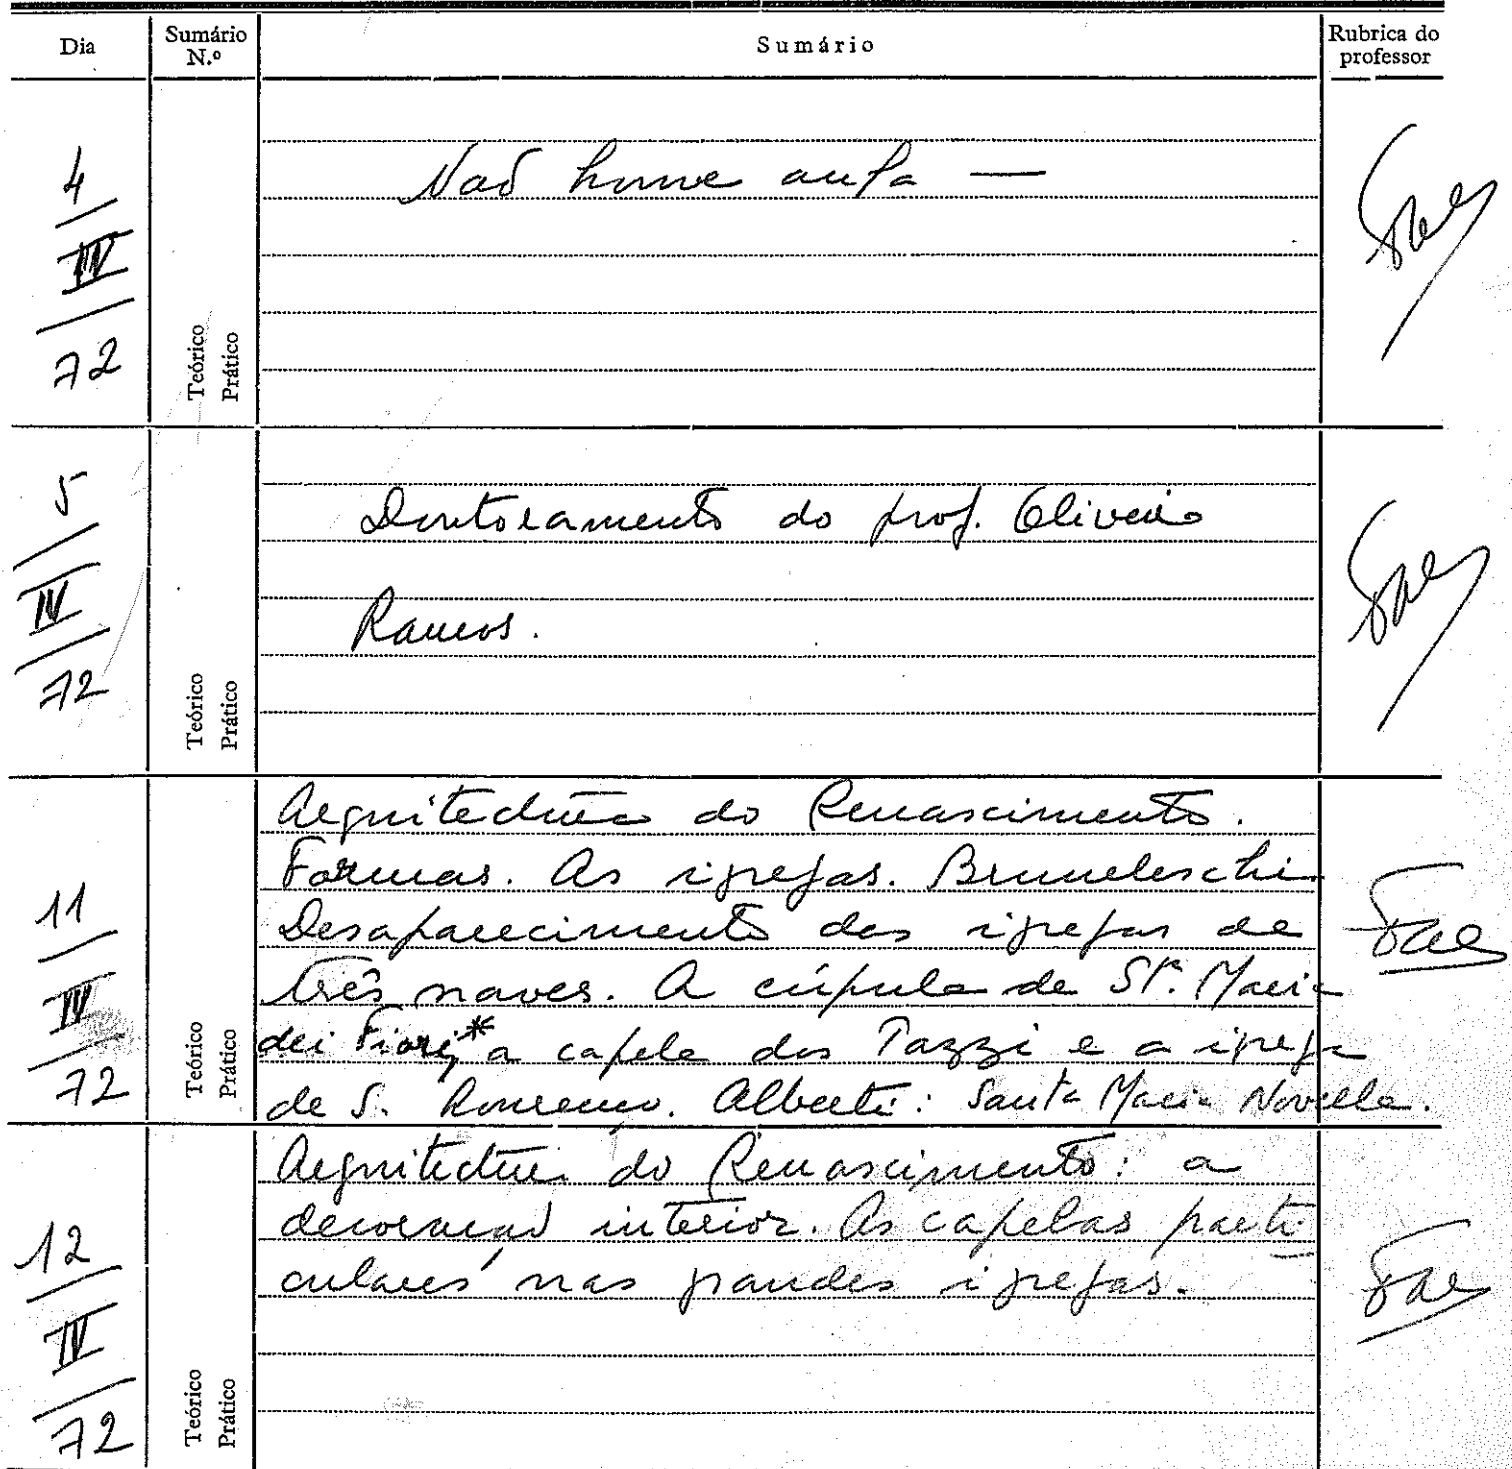 Dia Sumário N.º Sumário Rubrica do professor
4/IV/72
Teórico
Prático
Não houve aula —
5/IV/72
Teórico
Prático
Doutoramento do prof. Oliveira
Ramos.
11/IV/72
Teórico
Prático
Arquitectura do Renascimento.
Formas. As igrejas. Bruneleschi
Desaparecimento das igrejas de
três naves. A cúpula de St.ª Maria
dei Fiori;* a capela dos Pazzi e a igreja
de S. Lourenço. Alberti: Santa Maria Novella.
12/IV/72
Teórico
Prático
Arquitectura do Renascimento: a
decoração interior. As capelas parti-
culares nas grandes igrejas.